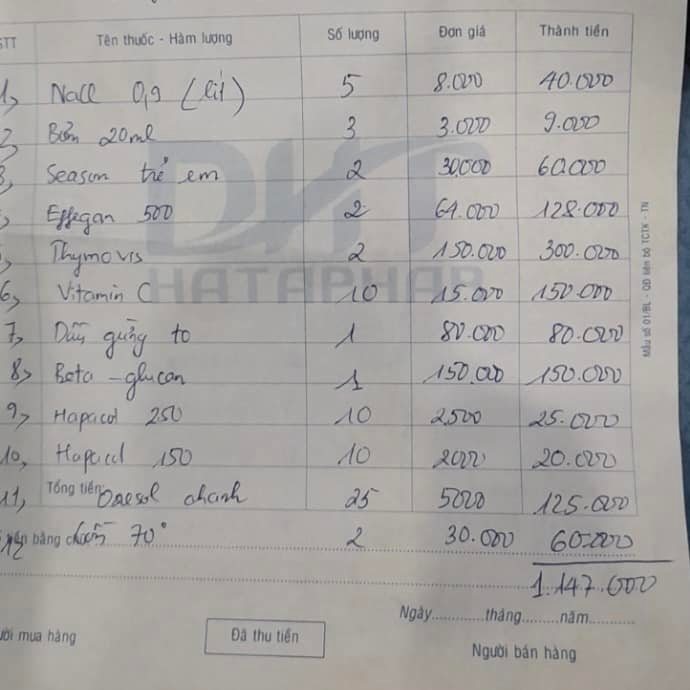 STT Tên thuốc - Hàm lượng Số lượng Đơn giá Thành tiền
1, Nacl 0,9 (lít) 5 8.000 40.000
2, Bơm 20ml 3 3.000 9.000
3, Season trẻ em 2 30000 60.000
Effegan 500 2 64.000 128.000
Thymovis 2 150.000 300.000
6, Vitamin C 10 15.000 150.000
7, Dầu gừng to 1 80.000 80.000
8, Beta-glucan 1 150.000 150.000
9, Hapacol 250 10 2500 25.000
10, Hapacol 150 10 2000 20.000
11, Tổng tiền: Oresol chanh 25 5000 125.000
12 bằng cồn 70° 2 30.000 60.000
1.147.000
Ngày............tháng.........năm...........
ười mua hàng Đã thu tiền Người bán hàng
DHT
HATAPHAR
Mẫu số 01/BL - QĐ liên bộ TCTK - TN